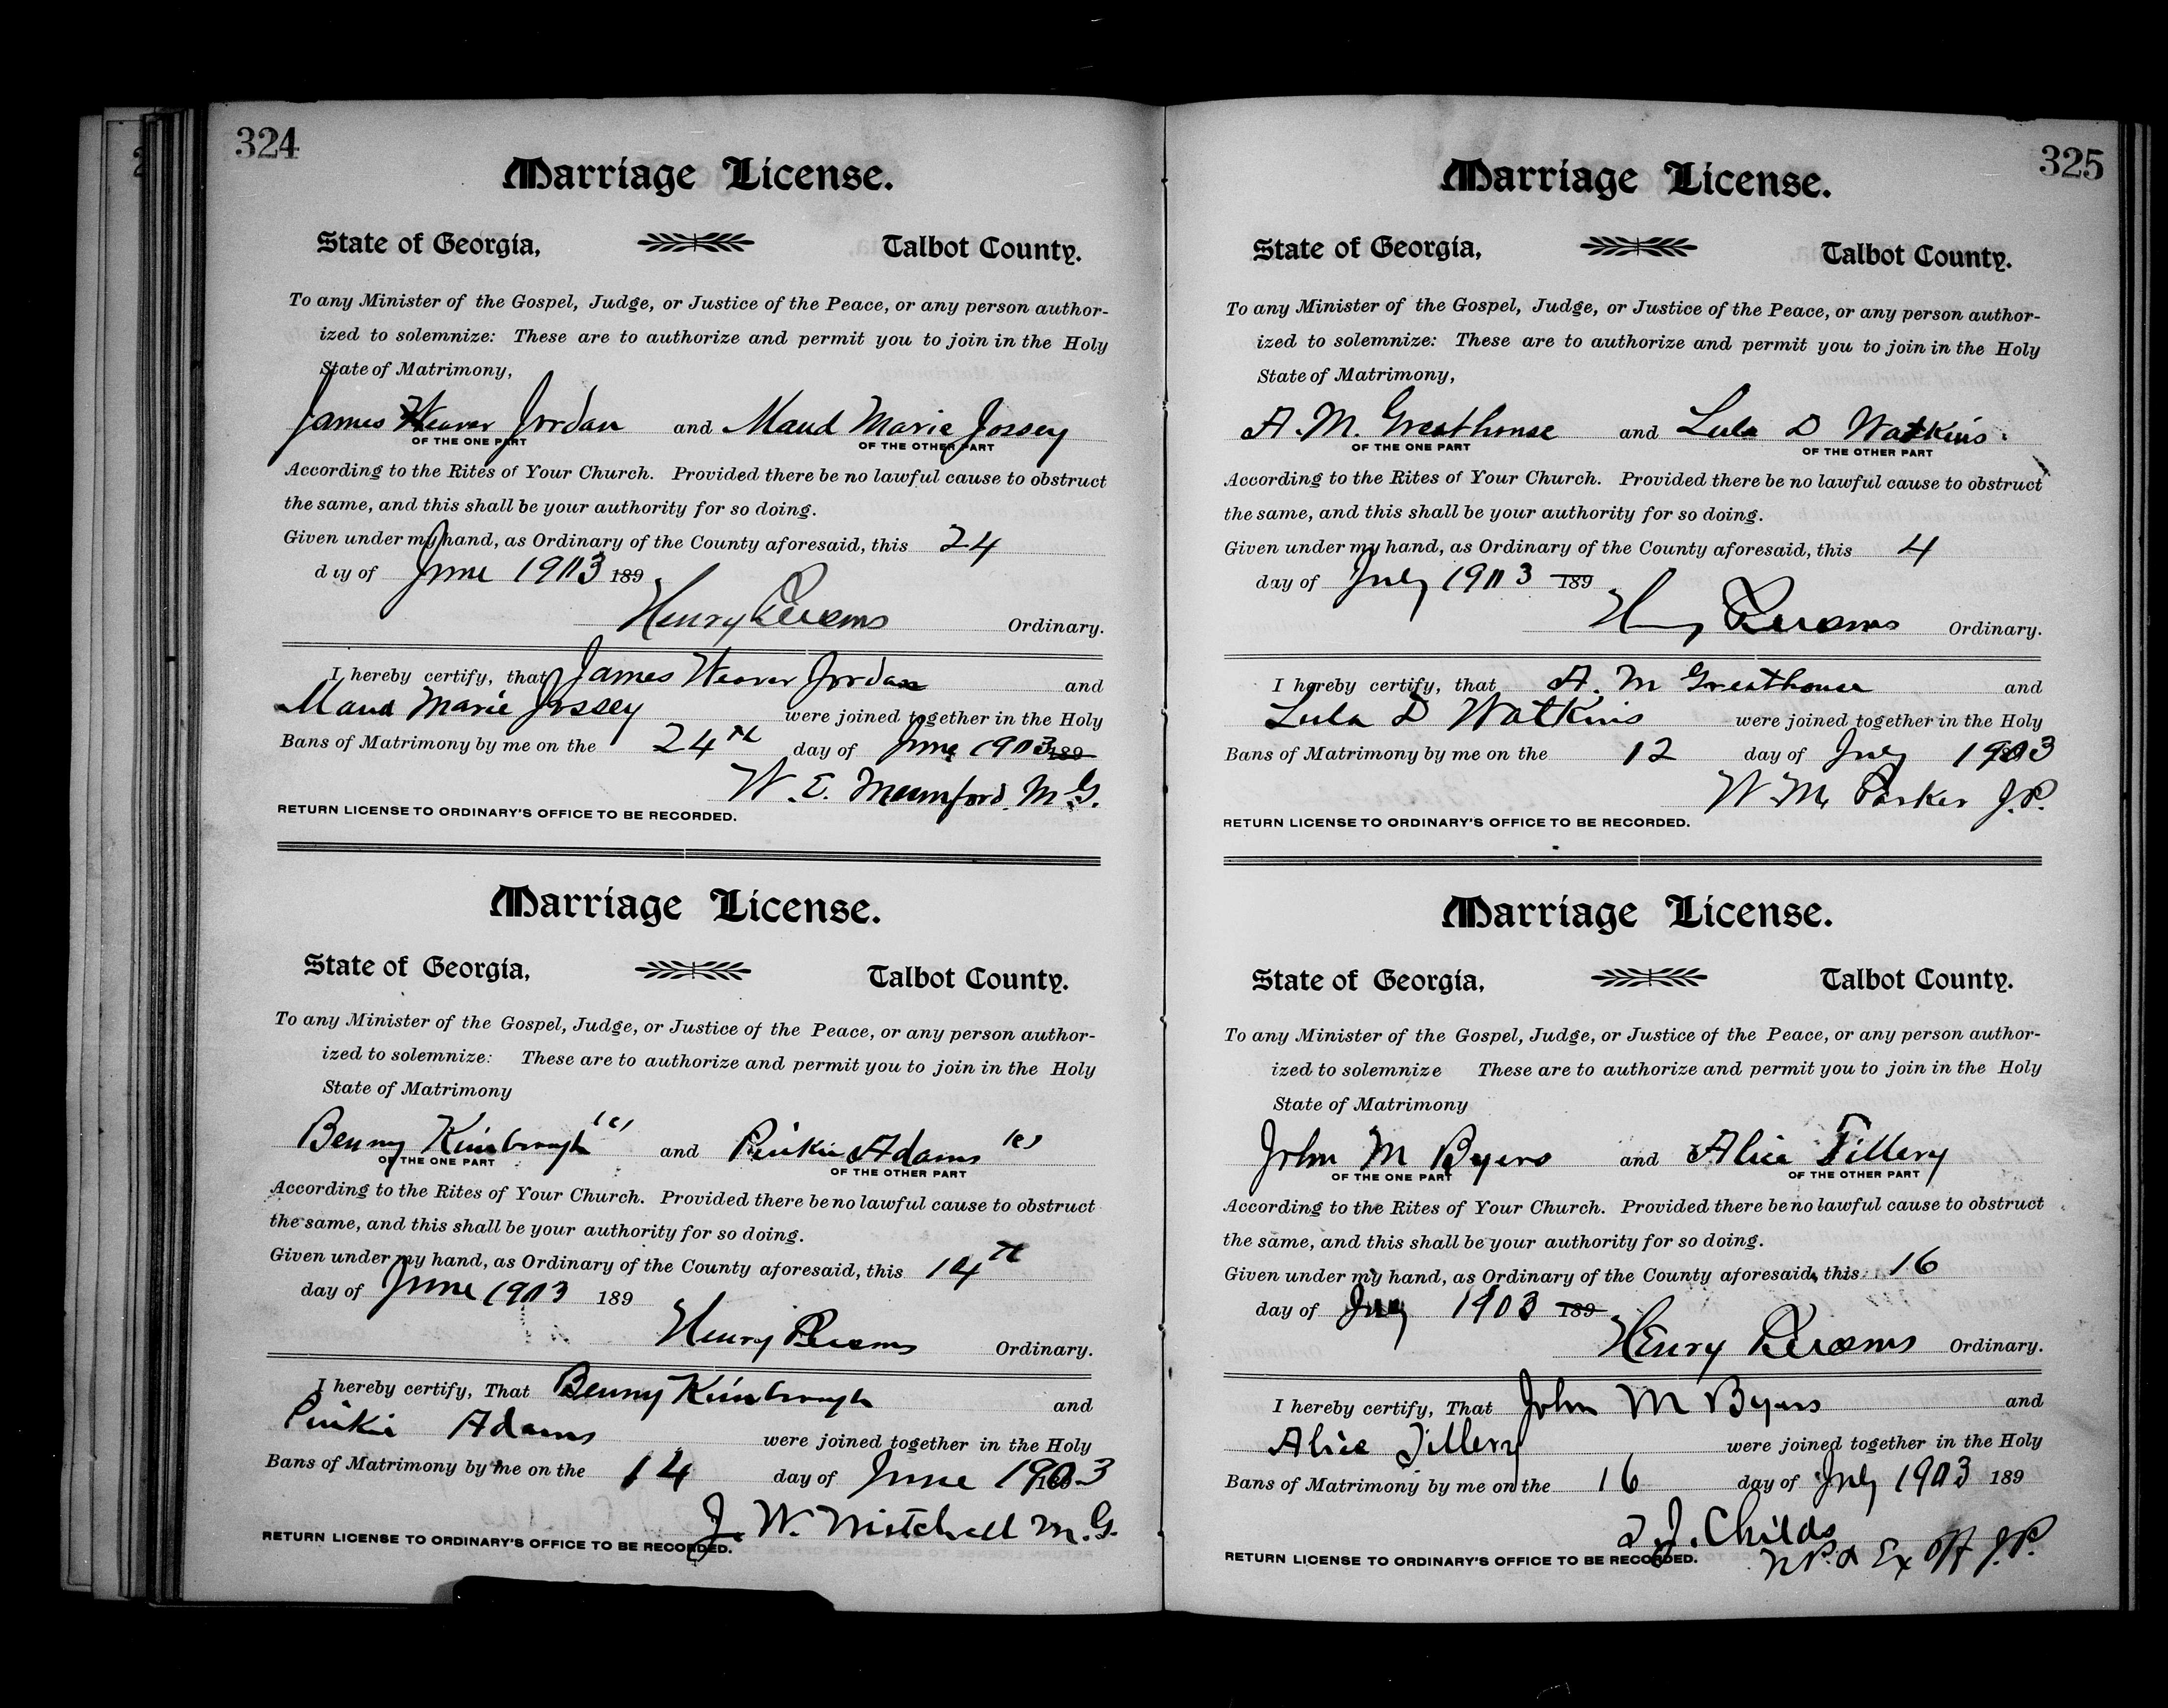 324
Marriage License.
State of Georgia, Talbot County.
To any Minister of the Gospel, Judge, or Justice of the Peace, or any person author-
ized to solemnize: These are to authorize and permit you to join in the Holy
State of Matrimony,
James Weaver Jordan and Maud Marie Jossey
OF THE ONE PART OF THE OTHER PART
According to the Rites of Your Church. Provided there be no lawful cause to obstruct
the same, and this shall be your authority for so doing.
Given under my hand, as Ordinary of the County aforesaid, this 24
day of June 1903 189
Henry Ordinary.
I hereby certify, that James Weaver Jordan and
Maud Marie Jossey were joined together in the Holy
Bans of Matrimony by me on the 24th day of June 1903 189
W. E. Mumford M.G.
RETURN LICENSE TO ORDINARY'S OFFICE TO BE RECORDED.
Marriage License.
State of Georgia, Talbot County.
To any Minister of the Gospel, Judge, or Justice of the Peace, or any person author-
ized to solemnize: These are to authorize and permit you to join in the Holy
State of Matrimony
Benny Kimbrough (c) and Pinkie Adams (c)
OF THE ONE PART OF THE OTHER PART
According to the Rites of Your Church. Provided there be no lawful cause to obstruct
the same, and this shall be your authority for so doing.
Given under my hand, as Ordinary of the County aforesaid, this 14th
day of June 1903 189
Henry Ordinary.
I hereby certify, That Benny Kimbrough and
Pinkie Adams were joined together in the Holy
Bans of Matrimony by me on the 14 day of June 1903
J. W. Mitchell M.G.
RETURN LICENSE TO ORDINARY'S OFFICE TO BE RECORDED.
325
Marriage License.
State of Georgia, Talbot County.
To any Minister of the Gospel, Judge, or Justice of the Peace, or any person author-
ized to solemnize: These are to authorize and permit you to join in the Holy
State of Matrimony,
A. M. Greathouse and Lula D Watkins.
OF THE ONE PART OF THE OTHER PART
According to the Rites of Your Church. Provided there be no lawful cause to obstruct
the same, and this shall be your authority for so doing.
Given under my hand, as Ordinary of the County aforesaid, this 4
day of July 1903 189
Henry Ordinary.
I hereby certify, that A. M Greathouse and
Lula D Watkins were joined together in the Holy
Bans of Matrimony by me on the 12 day of July 1903
W. M. Parker J.P.
RETURN LICENSE TO ORDINARY'S OFFICE TO BE RECORDED.
Marriage License.
State of Georgia, Talbot County.
To any Minister of the Gospel, Judge, or Justice of the Peace, or any person author-
ized to solemnize These are to authorize and permit you to join in the Holy
State of Matrimony
John M Byers and Alice Tillery
OF THE ONE PART OF THE OTHER PART
According to the Rites of Your Church. Provided there be no lawful cause to obstruct
the same, and this shall be your authority for so doing.
Given under my hand, as Ordinary of the County aforesaid, this 16
day of July 1903 189
Henry Ordinary.
I hereby certify, That John M Byers and
Alice Tillery were joined together in the Holy
Bans of Matrimony by me on the 16 day of July 1903 189
J. Childs
N.P. & Ex Off J.P.
RETURN LICENSE TO ORDINARY'S OFFICE TO BE RECORDED.